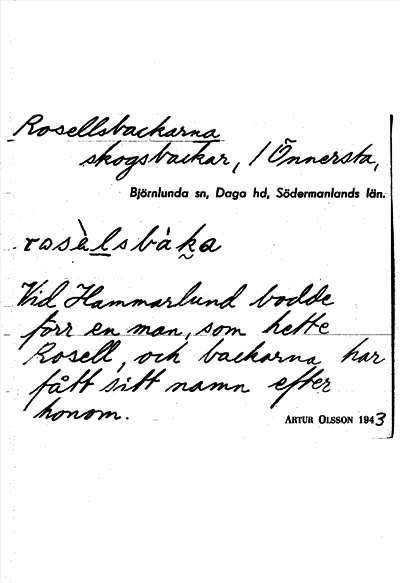 Rosellsbackarna
skogsbackar, / Önnersta,
Björnlunda sn, Daga hd, Södermanlands län.
rasèlsbàka
Vid Hammarlund bodde
förr en man, som hette
Rosell, och backarna har
fått sitt namn efter
honom.
ARTUR OLSSON 1943